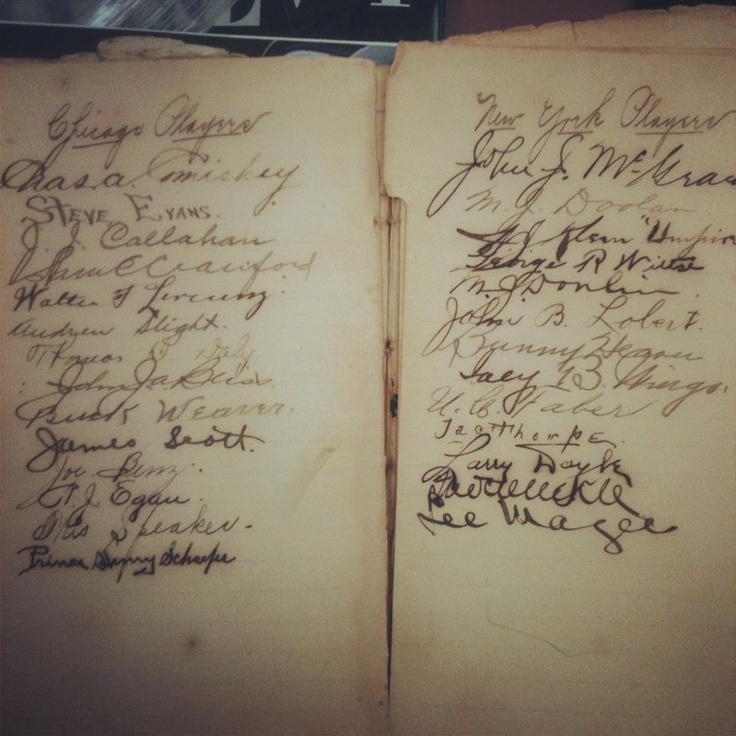 Chicago Players
Chas. A. Comiskey
STEVE EVANS.
J. J. Callahan
Sam C Crawford
Walter F Leverenz.
Andrew Slight.
Thomas D. Daly
John J. a Bliss.
BUCK WEAVER.
James Scott.
Joe Benz.
R. J. Egan.
Tris Speaker.
Prince Henry Schaefer
New York Players
John J. McGraw
M. J. Doolan
W J Klem "Umpire
George R Wiltse
M. J. Donlin.
John B. Lobert.
Bunny Hearn
Ivey B. Wingo.
U. C. Faber
Jas Thorpe.
Larry Doyle
F W Merkle
Lee Magee